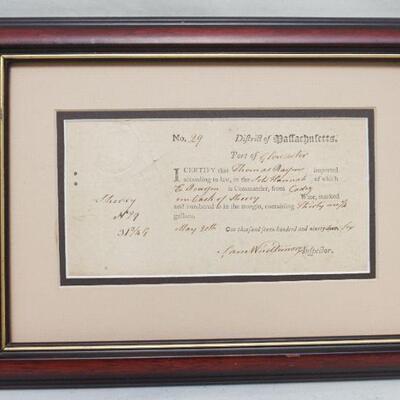 No. 29 District of Massachusetts.
Port of Gloucester
I CERTIFY that Thomas imported
according to law, in the Hannah of which
is Commander, from Cadiz
one Cask of Sherry Wine, marked
and numbered as in the margin, containing Thirty one
gallons.
Sherry
No 29
31 G
May 20th One thousand seven hundred and ninety-six
Sam Inspector.